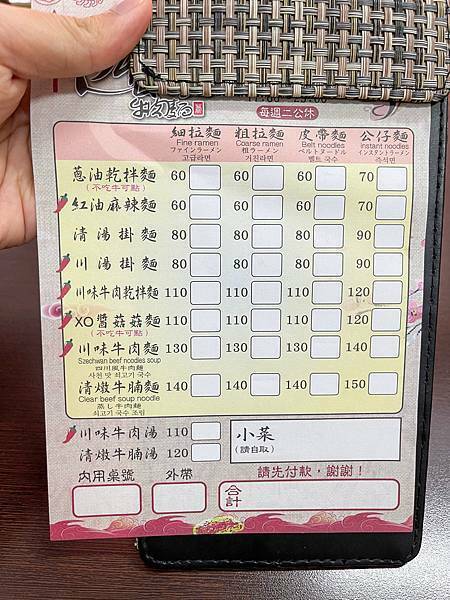 每週二公休
細拉麵 粗拉麵 皮帶麵 公仔麵
Fine ramen Coarse ramen Belt noodles instant noodles
ファインラーメン 粗ラーメン ベルトヌードル インスタントラーメン
고급라면 거친라면 벨트 국수 즉석면
蔥油乾拌麵 60 60 60 70
(不吃牛可點)
紅油麻辣麵 60 60 60 70
清湯掛麵 80 80 80 90
川湯掛麵 80 80 80 90
川味牛肉乾拌麵 110 110 110 120
XO醬菇菇麵 110 110 110 120
(不吃牛可點)
川味牛肉麵 130 130 130 140
Szechwan beef noodles soup
四川風牛肉麵
사천 맛 쇠고기 국수
清燉牛腩麵 140 140 140 150
Clear beef soup noodle
蒸し牛肉麵
쇠고기 국수 조림
川味牛肉湯 110
清燉牛腩湯 120
小菜
(請自取)
內用桌號 外帶 請先付款，謝謝！
合計